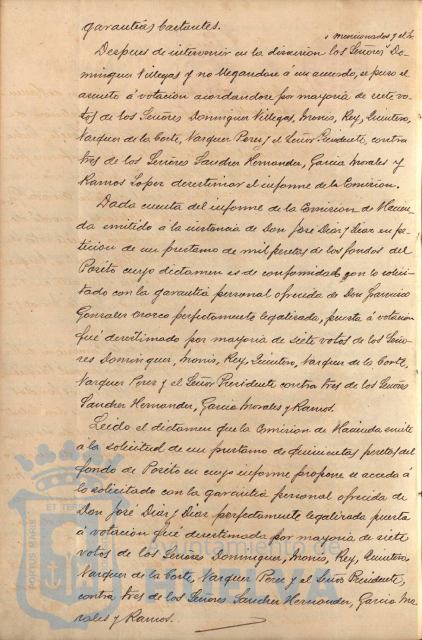 garantías bastantes.
mencionados y el Sr.
Despues de intervenir en la discusion los Señores Do-
minguez Villegas y no llegandose á un acuerdo, se puso el
asunto á votación acordandose por mayoría de siete vo-
tos de los Señores Dominguez Villegas, Monis, Rey, Quintero,
Vazquez de la Corte, Vazquez Perez y el Señor Presidente, contra
tres de los Señores Sanchez Hernandez, Garcia Morales y
Ramos Lopez desestimar el informe de la Comision.
Dada cuenta del informe de la Comision de Hacien-
da emitido á la instancia de Don José Diaz y Diaz en pe-
ticion de un prestamo de mil pesetas de los fondos del
Pósito cuyo dictamen es de conformidad con lo solici-
tado con la garantía personal ofrecida de Don Francisco
Gonzalez Orozco perfectamente legalizada, puesta á votación
fué desestimado por mayoría de siete votos de los Seño-
res Dominguez, Monis, Rey, Quintero, Vazquez de la Corte,
Vazquez Perez y el Señor Presidente contra tres de los Señores
Sanchez Hernandez, Garcia Morales y Ramos.
Leido el dictamen que la Comision de Hacienda emite
á la solicitud de un prestamo de quinientas pesetas del
fondo de Pósito en cuyo informe propone se acceda á
lo solicitado con la garantía personal ofrecida de
Don José Diaz y Diaz perfectamente legalizada puesta
á votación fué desestimada por mayoría de siete
votos de los Señores Dominguez, Monis, Rey, Quintero
Vazquez de la Corte, Vazquez Perez y el Señor Presidente,
contra tres de los Señores Sanchez Hernandez, Garcia Mo-
rales y Ramos.
PORTUS MARIS ET TERRAE
Ayuntamiento de
HUELVA